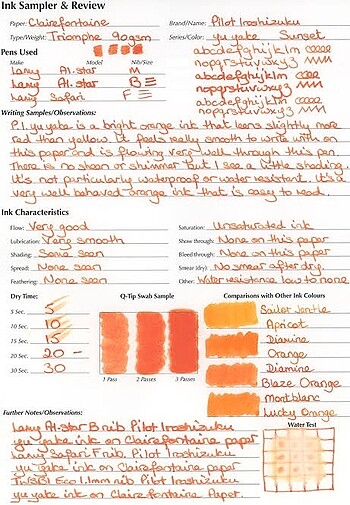 Ink Sampler & Review
Paper: Clairefontaine
Brand/Name: Pilot Iroshizuku
Type/Weight: Triomphe 90gsm
Series/Color: yu yake Sunset
Pens Used
abcdefghijklm
nopqrstuvwxyz
Make Model Nib/Size
Lamy Al-star M
abcdefghijklm
Lamy Al-star B
nopqrstuvwxyz
Lamy Safari F
abcdefghijklm
nopqrstuvwxyz
Writing Samples/Observations:
P.I. yu yake is a bright orange ink that leans slightly more
red than yellow. It feels really smooth to write with on
this paper and is flowing very well through this pen.
There is no sheen or shimmer but I see a little shading.
It's not particularly waterproof or water resistent. It's a
very well behaved orange ink that is easy to read.
Ink Characteristics
Flow: Very good
Saturation: Unsaturated ink
Lubrication: Very smooth
Show through: None on this paper
Shading: Some seen
Bleed through: None on this paper
Spread: None seen
Smear (dry): No smear after dry.
Feathering: None seen
Other: Water resistence low to none
Dry Time:
Q-Tip Swab Sample
Comparisons with Other Ink Colours
5 Sec. 5
10 Sec. 10
15 Sec. 15
20 Sec. 20
30 Sec. 30
1 Pass 2 Passes 3 Passes
Sailor Jentle
Apricot
Diamine
Orange
Diamine
Blaze Orange
Montblanc
Lucky Orange
Further Notes/Observations:
Water Test
Lamy Al-star B nib Pilot Iroshizuku
yu yake ink on Clairefontaine paper
Lamy Safari F nib. Pilot Iroshizuku
yu yake ink on Clairefontaine paper
1.1mm nib Pilot Iroshizuku
yu yake ink on Clairefontaine Paper.